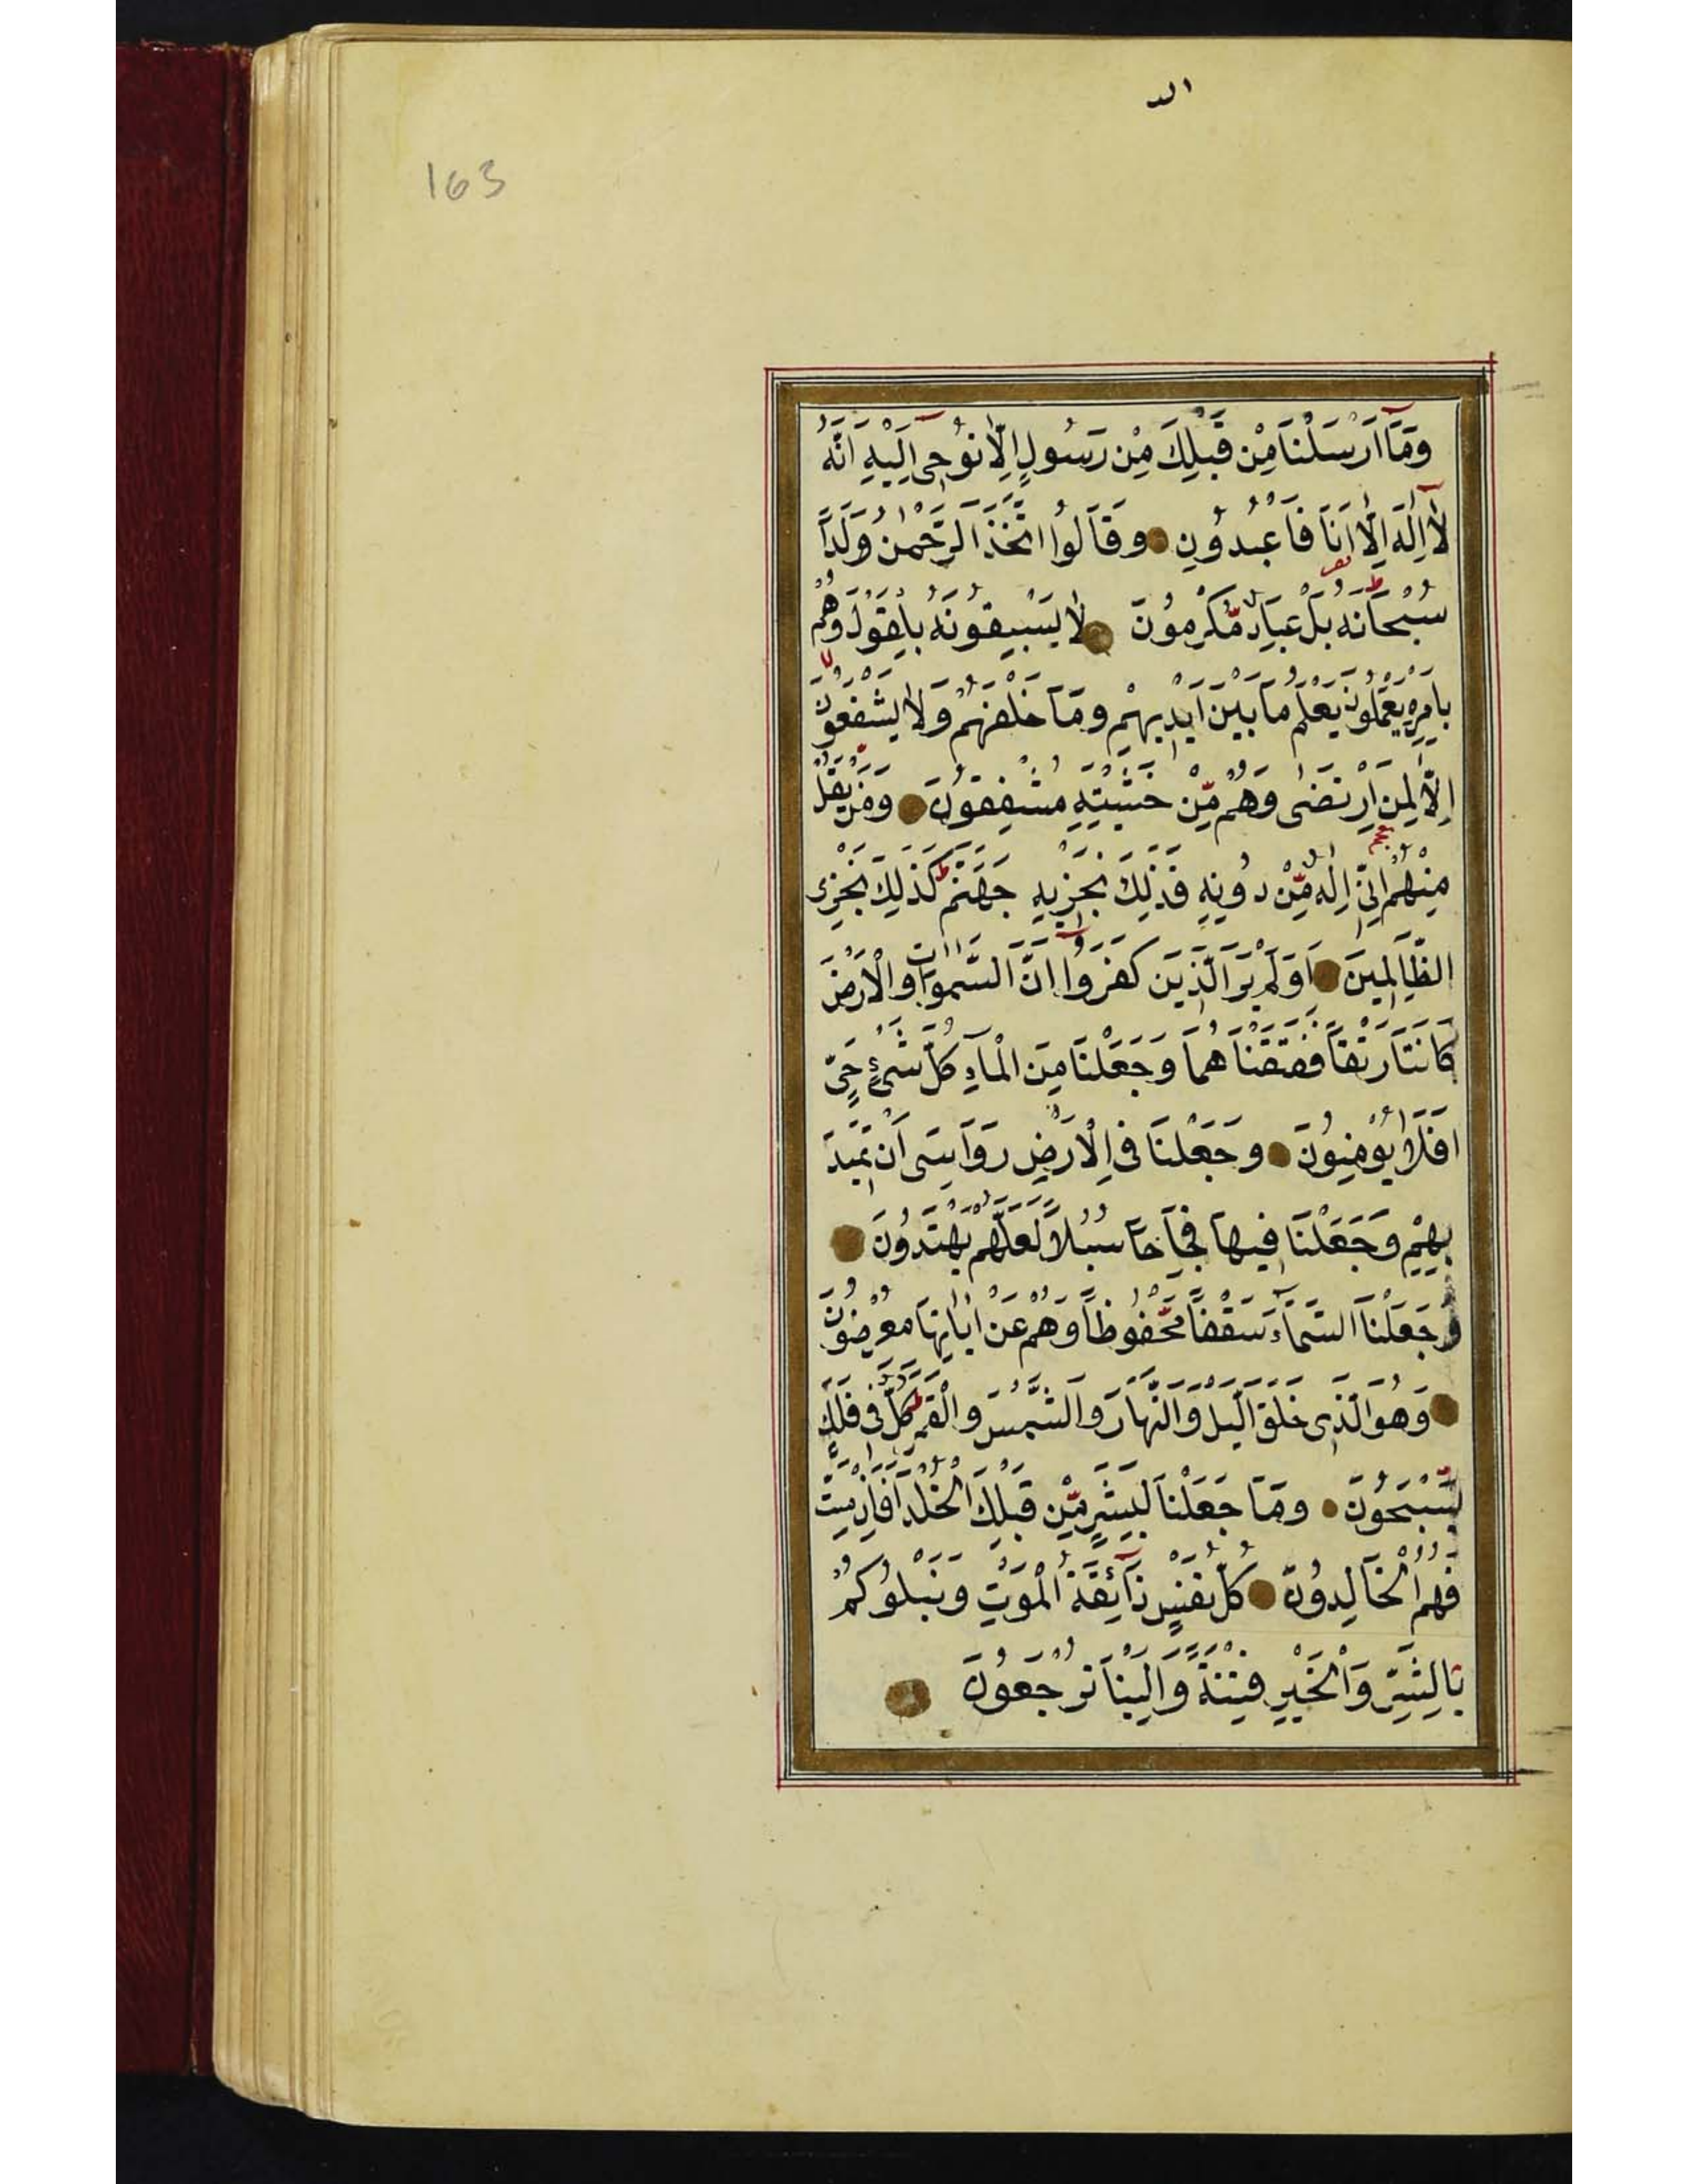 الد
163
وَمَآ اَرْسَلْنَا مِنْ قَبْلِكَ مِنْ رَسُولٍ اِلَّا نُوحِى اِلَيْهِ اَنَّهُ
لَآ اِلٰهَ اِلَّا اَنَا فَاعْبُدُونِ وَقَالُوا اتَّخَذَ الرَّحْمٰنُ وَلَدًا
سُبْحَانَهُ بَلْ عِبَادٌ مُّكْرَمُونَ لَا يَسْبِقُونَهُ بِالْقَوْلِ وَهُمْ
بِاَمْرِهِ يَعْمَلُونَ يَعْلَمُ مَا بَيْنَ اَيْدِيهِمْ وَمَا خَلْفَهُمْ وَلَا يَشْفَعُونَ
اِلَّا لِمَنِ ارْتَضٰى وَهُمْ مِّنْ خَشْيَتِهِ مُشْفِقُونَ وَمَنْ يَقُلْ
مِنْهُمْ اِنِّى اِلٰهٌ مِّنْ دُونِهِ فَذٰلِكَ نَجْزِيهِ جَهَنَّمَ كَذٰلِكَ نَجْزِى
الظَّالِمِينَ اَوَلَمْ يَرَ الَّذِينَ كَفَرُوا اَنَّ السَّمٰوَاتِ وَالْاَرْضَ
كَانَتَا رَتْقًا فَفَتَقْنَاهُمَا وَجَعَلْنَا مِنَ الْمَآءِ كُلَّ شَىْءٍ حَىٍّ
اَفَلَا يُؤْمِنُونَ وَجَعَلْنَا فِى الْاَرْضِ رَوَاسِىَ اَنْ تَمِيدَ
بِهِمْ وَجَعَلْنَا فِيهَا فِجَاجًا سُبُلًا لَعَلَّهُمْ يَهْتَدُونَ
وَجَعَلْنَا السَّمَآءَ سَقْفًا مَّحْفُوظًا وَهُمْ عَنْ اٰيَاتِهَا مُعْرِضُونَ
وَهُوَ الَّذِى خَلَقَ الَّيْلَ وَالنَّهَارَ وَالشَّمْسَ وَالْقَمَرَ كُلٌّ فِى فَلَكٍ
يَّسْبَحُونَ وَمَا جَعَلْنَا لِبَشَرٍ مِّنْ قَبْلِكَ الْخُلْدَ اَفَاِنْ مِتَّ
فَهُمُ الْخَالِدُونَ كُلُّ نَفْسٍ ذَآئِقَةُ الْمَوْتِ وَنَبْلُوكُمْ
بِالشَّرِّ وَالْخَيْرِ فِتْنَةً وَاِلَيْنَا تُرْجَعُونَ